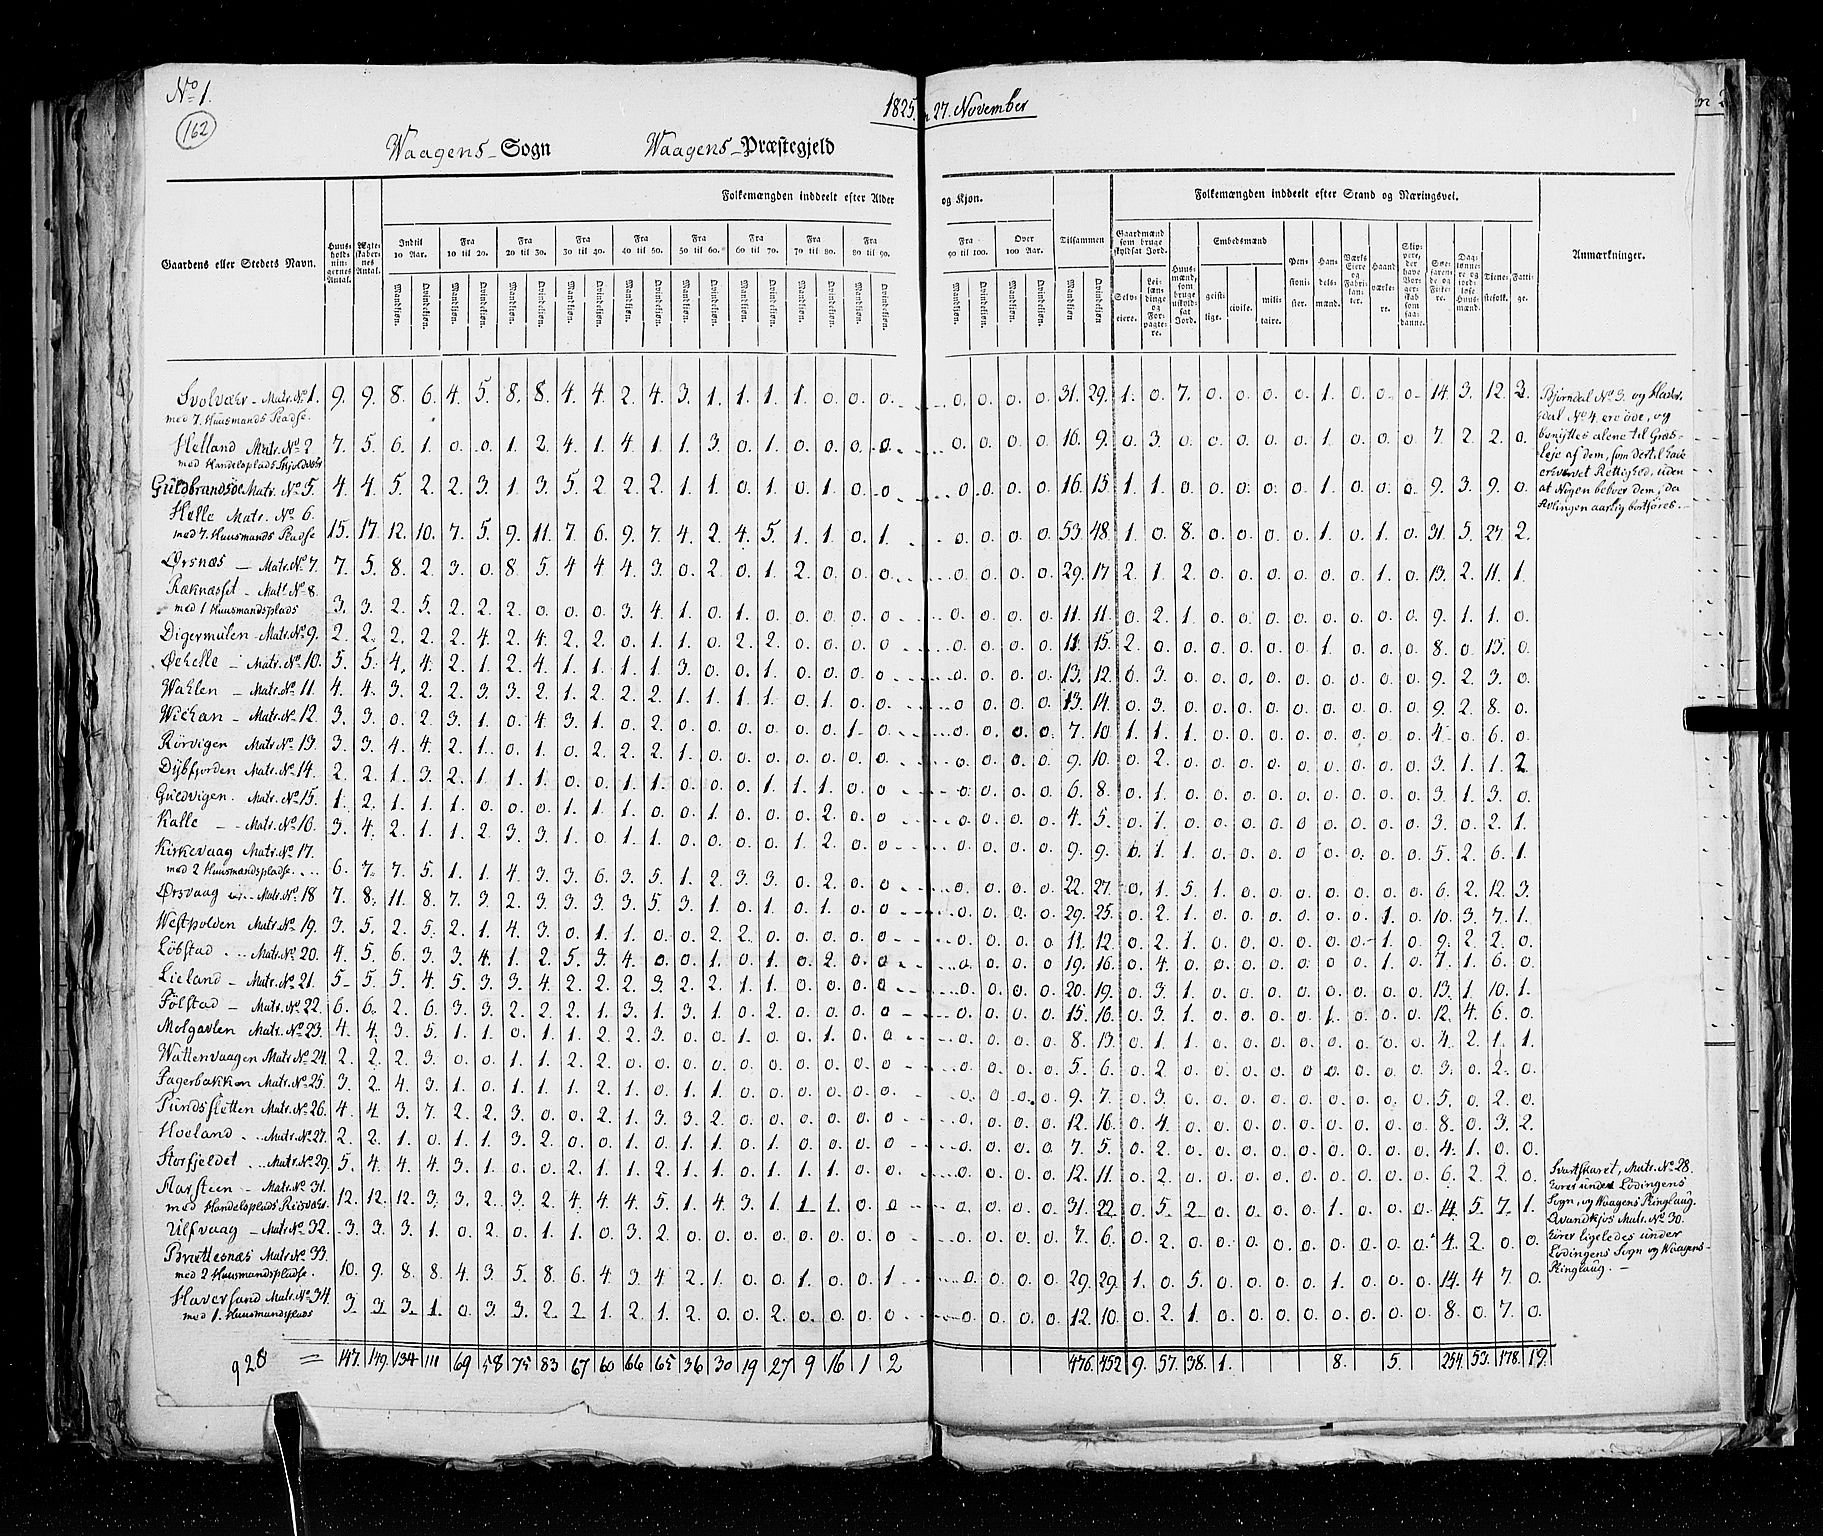 No 1.
162
1825, 27. November
Waagens Sogn Waagens Præstegjeld
Folkemængden inddeelt efter Alder og Kjøn.
Folkemængden inddeelt efter Stand og Næringsvei.
Gaardens eller Stedets Navn.
Huusholdningernes Antal.
Ægteskabernes Antal.
Indtil 10 Aar.
Fra 10 til 20.
Fra 20 til 30.
Fra 30 til 40.
Fra 40 til 50.
Fra 50 til 60.
Fra 60 til 70.
Fra 70 til 80.
Fra 80 til 90.
Fra 90 til 100.
Over 100 Aar.
Tilsammen
Mandkjøn. Qvindekjøn.
Gaardmænd som bruge skyldsat Jord.
Selveiere.
Leilændinge og Forpagtere.
Huusmænd, som bruge uskyldsat Jord.
Embedsmænd
geistlige. civile. militaire.
Pensionister.
Handelsmænd.
Værks Eiere og Fabrikanter.
Haandværkere.
Skippere, der have Borgerskab som saadanne.
Søefarende og Fiskere.
Daglønnere og jordløse Huusmænd.
Tienestefolk.
Fattige.
Anmærkninger.
Svolvær - Matr. No 1. 9. 9. 8. 6. 4. 5. 8. 8. 4. 4. 2. 4. 3. 1. 1. 1. 1. 0. 0. 0. 0. 0. 0. 0. 31. 29. 1. 0. 7. 0. 0. 0. 0. 1. 0. 0. 0. 14. 3. 12. 2.
med 7. Huusmands Pladse.
Helland Matr. No 2. 7. 5. 6. 1. 0. 0. 1. 2. 4. 1. 4. 1. 1. 3. 0. 1. 0. 0. 0. 0. 0. 0. 0. 0. 16. 9. 0. 3. 0. 0. 0. 0. 0. 1. 0. 0. 0. 7. 2. 2. 0.
med Handelsplads Skjoldvær
Guldbrandsöe Matr. No 5. 4. 4. 5. 2. 2. 3. 1. 3. 5. 2. 2. 2. 1. 1. 0. 1. 0. 1. 0. 0. 0. 0. 0. 0. 16. 15. 1. 1. 0. 0. 0. 0. 0. 1. 0. 0. 0. 9. 3. 9. 0.
Helle Matr. No 6.
med 7. Huusmands Pladse 15. 17. 12. 10. 7. 5. 9. 11. 7. 6. 9. 7. 4. 2. 4. 5. 1. 1. 0. 1. 0. 0. 0. 0. 53. 48. 1. 0. 8. 0. 0. 0. 0. 1. 0. 1. 0. 31. 5. 27. 2.
Ørsnæs - Matr. No 7. 7. 5. 8. 2. 3. 0. 8. 5. 4. 4. 4. 3. 0. 2. 0. 1. 2. 0. 0. 0. 0. 0. 0. 0. 29. 17. 2. 1. 2. 0. 0. 0. 0. 0. 0. 1. 0. 13. 2. 11. 1.
Røknæsset - Mat. No 8.
med 1 Huusmandsplads 3. 3. 2. 5. 2. 2. 2. 0. 0. 0. 3. 4. 1. 0. 1. 0. 0. 0. 0. 0. 0. 0. 0. 0. 11. 11. 0. 2. 1. 0. 0. 0. 0. 0. 0. 0. 0. 9. 1. 1. 0.
Digermulen Matr. No 9. 2. 2. 2. 2. 2. 4. 2. 4. 2. 2. 0. 1. 1. 0. 2. 2. 0. 0. 0. 0. 0. 0. 0. 0. 11. 15. 2. 0. 0. 0. 0. 0. 0. 1. 0. 0. 0. 8. 0. 13. 0.
Øehelle - Matr. No 10. 5. 5. 4. 4. 2. 1. 2. 4. 1. 1. 1. 1. 3. 0. 0. 1. 0. 0. 0. 0. 0. 0. 0. 0. 13. 12. 0. 3. 0. 0. 0. 0. 0. 0. 0. 0. 0. 9. 2. 3. 0.
Wahlen - Matr. No 11. 4. 4. 3. 2. 2. 3. 3. 2. 1. 2. 2. 2. 1. 1. 1. 1. 0. 1. 0. 0. 0. 0. 0. 0. 13. 14. 0. 3. 0. 0. 0. 0. 0. 0. 0. 0. 0. 9. 2. 8. 0.
Wichan - Matr. No 12. 3. 3. 0. 2. 3. 1. 0. 4. 3. 1. 0. 2. 0. 0. 0. 0. 0. 0. 1. 0. 0. 0. 0. 0. 7. 10. 1. 1. 1. 0. 0. 0. 0. 0. 0. 0. 0. 4. 0. 6. 0.
Rörvigen Matr. No 13. 3. 3. 4. 4. 2. 1. 0. 1. 0. 2. 2. 2. 1. 0. 0. 0. 0. 0. 0. 0. 0. 0. 0. 0. 9. 10. 0. 2. 0. 0. 0. 0. 0. 0. 0. 0. 0. 3. 1. 1. 2.
Dybfjorden Matr. No 14. 2. 2. 1. 3. 2. 1. 1. 1. 0. 0. 1. 1. 0. 0. 1. 1. 1. 0. 0. 0. 0. 0. 0. 6. 8. 0. 1. 0. 0. 0. 0. 0. 0. 0. 0. 0. 3. 1. 3. 0.
Guldvigen. Matr. No 15. 1. 2. 1. 1. 1. 0. 0. 0. 1. 1. 1. 0. 0. 1. 0. 0. 0. 2. 0. 0. 0. 0. 0. 0. 4. 5. 0. 1. 0. 0. 0. 0. 0. 0. 0. 0. 0. 3. 0. 2. 1.
Kalle - Matr. No 16. 3. 4. 2. 1. 1. 2. 3. 3. 1. 0. 1. 1. 0. 0. 0. 0. 1. 2. 0. 0. 0. 0. 0. 0. 9. 9. 0. 1. 1. 0. 0. 0. 0. 0. 0. 0. 0. 5. 2. 6. 1.
Kirkevaag Matr. No 17.
med 2 Huusmandspladse. 6. 7. 7. 5. 1. 1. 4. 3. 3. 6. 3. 5. 1. 2. 3. 3. 0. 2. 0. 0. 0. 0. 0. 0. 22. 27. 0. 1. 5. 1. 0. 0. 0. 0. 0. 0. 0. 6. 2. 12. 3.
Ørsvaag - Matr. No 18 7. 8. 11. 8. 7. 3. 2. 3. 3. 3. 3. 5. 3. 1. 0. 1. 0. 1. 0. 0. 0. 0. 0. 0. 29. 25. 0. 2. 1. 0. 0. 0. 0. 0. 0. 1. 0. 10. 3. 7. 1.
Westpolden Matr. No 19. 3. 5. 2. 5. 2. 1. 4. 3. 0. 1. 1. 0. 0. 2. 2. 0. 0. 0. 0. 0. 0. 0. 0. 0. 11. 12. 0. 2. 1. 0. 0. 0. 0. 0. 0. 1. 0. 9. 2. 2. 0.
Löbstad . . Matr. No 20. 4. 5. 6. 3. 3. 4. 1. 2. 5. 3. 4. 0. 0. 1. 0. 1. 0. 2. 0. 0. 0. 0. 0. 0. 19. 16. 0. 4. 0. 0. 0. 0. 0. 0. 0. 1. 0. 7. 1. 6. 0.
Lieland - Matr. No 21. 5. 5. 5. 4. 5. 3. 3. 4. 2. 2. 2. 3. 2. 2. 1. 1. 0. 0. 0. 0. 0. 0. 0. 0. 20. 19. 0. 3. 1. 0. 0. 0. 0. 0. 0. 0. 0. 13. 1. 10. 1.
Fölstad - Matr. No 22. 6. 6. 2. 6. 3. 3. 2. 2. 2. 1. 3. 1. 3. 1. 0. 2. 0. 0. 0. 0. 0. 0. 0. 0. 15. 16. 0. 3. 1. 0. 0. 0. 0. 1. 0. 0. 0. 12. 4. 6. 0.
Molgavlen Matr. No 23. 4. 4. 3. 5. 1. 1. 0. 1. 1. 2. 2. 3. 0. 0. 1. 0. 0. 1. 0. 0. 0. 0. 0. 0. 8. 13. 0. 1. 1. 0. 0. 0. 0. 0. 0. 0. 0. 4. 2. 1. 1.
Wattenvaagen Matr. No 24. 2. 2. 2. 3. 0. 0. 1. 1. 2. 2. 0. 0. 0. 0. 0. 0. 0. 0. 0. 0. 0. 0. 0. 0. 5. 6. 0. 2. 0. 0. 0. 0. 0. 0. 0. 0. 0. 3. 0. 2. 0.
Fagerbakken Matr. No 25. 3. 2. 4. 3. 1. 0. 1. 1. 1. 2. 1. 0. 1. 1. 0. 0. 0. 0. 0. 0. 0. 0. 0. 0. 9. 7. 0. 3. 0. 0. 0. 0. 0. 0. 0. 0. 0. 5. 0. 2. 0.
Pundsfletten Matr. No 26. 4. 4. 3. 7. 2. 2. 3. 0. 0. 2. 1. 3. 3. 2. 0. 0. 0. 0. 0. 0. 0. 0. 0. 0. 12. 16. 0. 4. 0. 0. 0. 0. 0. 0. 0. 0. 0. 8. 0. 3. 2.
Hoeland . . Matr. No 27. 2. 2. 1. 0. 1. 1. 3. 2. 0. 0. 1. 0. 1. 1. 0. 1. 0. 0. 0. 0. 0. 0. 0. 0. 7. 5. 0. 2. 0. 0. 0. 0. 0. 0. 0. 0. 0. 4. 1. 0. 0.
Storfjeldet . . Matr. No 29. 5. 4. 4. 4. 3. 1. 0. 0. 2. 1. 1. 2. 1. 1. 0. 1. 1. 1. 0. 0. 0. 0. 0. 0. 12. 11. 0. 2. 0. 0. 0. 0. 0. 0. 0. 0. 0. 6. 2. 2. 0.
Aarsteen - Matr. No 31.
med Handelsplads Risvær 12. 12. 12. 3. 3. 2. 3. 2. 4. 4. 4. 5. 1. 4. 3. 1. 1. 1. 0. 0. 0. 0. 0. 0. 31. 22. 0. 5. 2. 0. 0. 0. 0. 1. 0. 0. 0. 14. 5. 7. 1.
Ulfvaag - Matr. No 32. 3. 3. 3. 1. 0. 2. 0. 1. 1. 0. 3. 2. 0. 0. 0. 0. 0. 0. 0. 0. 0. 0. 0. 0. 7. 6. 0. 2. 0. 0. 0. 0. 0. 0. 0. 0. 0. 4. 2. 0. 0.
Brættesnæs Matr. No 33.
med 2 Huusmandspladse. 10. 9. 8. 8. 4. 3. 5. 8. 6. 4. 3. 4. 2. 1. 0. 0. 1. 0. 0. 1. 0. 0. 0. 0. 29. 29. 1. 0. 5. 0. 0. 0. 0. 1. 0. 0. 0. 14. 4. 7. 0.
Haversand Matr. No 34.
med 1. Huusmandsplads 3. 3. 3. 1. 0. 3. 3. 2. 2. 1. 2. 1. 2. 0. 0. 2. 0. 0. 0. 0. 0. 0. 0. 0. 12. 10. 0. 2. 1. 0. 0. 0. 0. 0. 0. 0. 0. 8. 0. 7. 0.
928 = 147. 149. 134 111 69 58 75 83 67 60 66 65 36 30 19 27 9 16 1 2 476. 452 9. 57. 38. 1. 8. 5. 254. 53. 178. 19.
Bjørndal No 3. og
dal No 4. ere øde, og
benyttes alene til Græs-
leje af dem, som dertil have
erhvervet Rettighed, uden
at Nogen beboer dem, da
Avlingen aarlig bortføres.
Svartskaret, Matr. No 28.
hører under Lödingens
Sogn, og Waagens Thinglaug.
Qvandkjos Matr. No 30.
hører ligeledes under
Lödingens Sogn og Waagens
Thinglaug. -